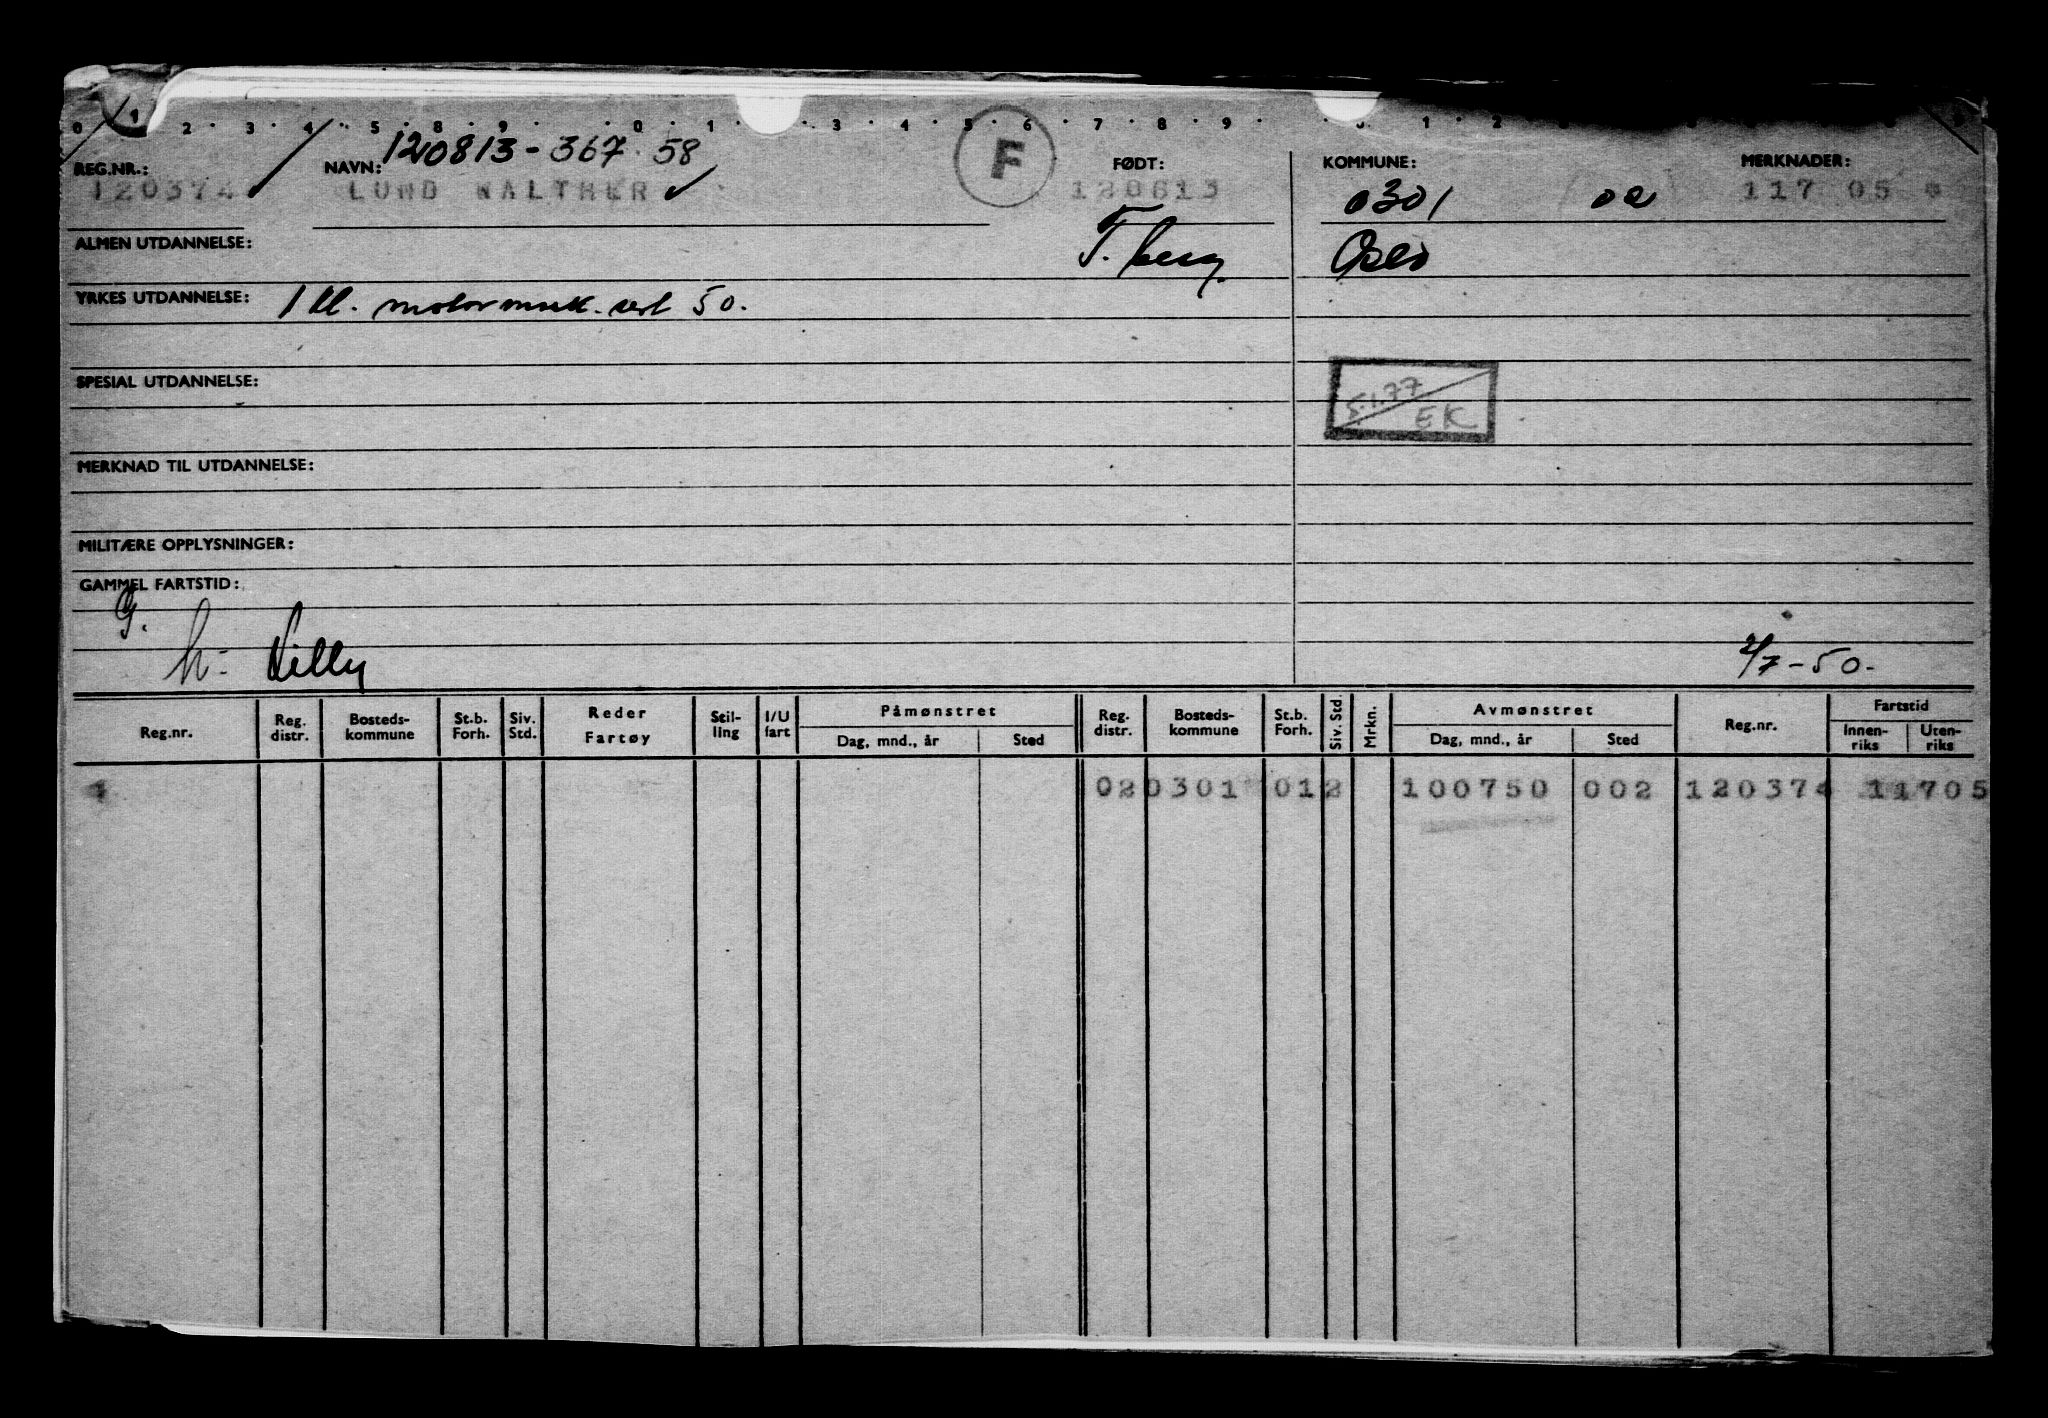 0 1 2 3 4 5 8 9 0 1 3 4 5 6 7 8 9 1 2
120813-367 58
REG.NR.: NAVN: F FØDT: KOMMUNE: MERKNADER:
120374 LUND WALTHER 120813 0301 02 117 05
ALMEN UTDANNELSE: T. berg Oslo
YRKES UTDANNELSE: 1 kl. motormask. sert 50.
SPESIAL UTDANNELSE:
5.1.77
EK
MERKNAD TIL UTDANNELSE:
MILITÆRE OPPLYSNINGER:
GAMMEL FARTSTID:
G.
h- Lilly 2/7-50.-
Reg.nr. Reg. distr. Bosteds-kommune St.b. Forh. Siv. Std. Reder Fartøy Stil-ling I/U fart Påmønstret Dag, mnd., år Sted Reg. distr. Bosteds-kommune St.b. Forh. Siv. Std. Mrkn. Avmønstret Dag, mnd., år Sted Reg.nr. Fartstid Innen-riks Uten-riks
02 0301 01 2 100750 002 120374 11705